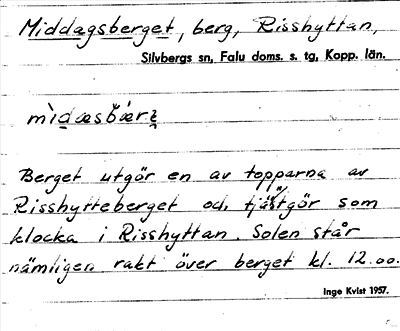 Middagsberget, berg, Risshyttan,
Silvbergs sn, Falu doms. s. tg, Kopp. län.
Berget utgör en av topparna av
Risshytteberget och tjästgör som
klocka i Risshyttan. Solen står
nämligen rakt över berget kl. 12.00.
Inge Kvist 1957.